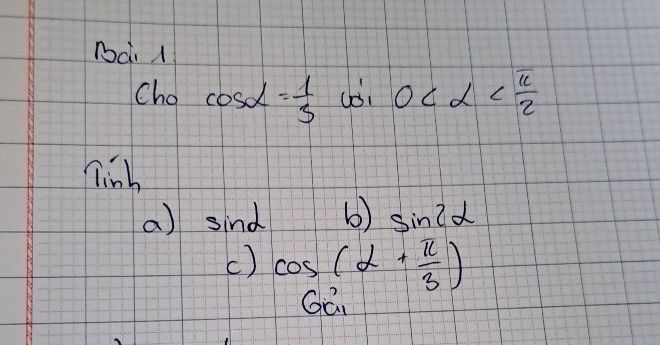 Bài 1
Cho cosα = 1/3 với 0 < α < π/2
Tính
a) sinα b) sin2α
c) cos (α + π/3)
Giải